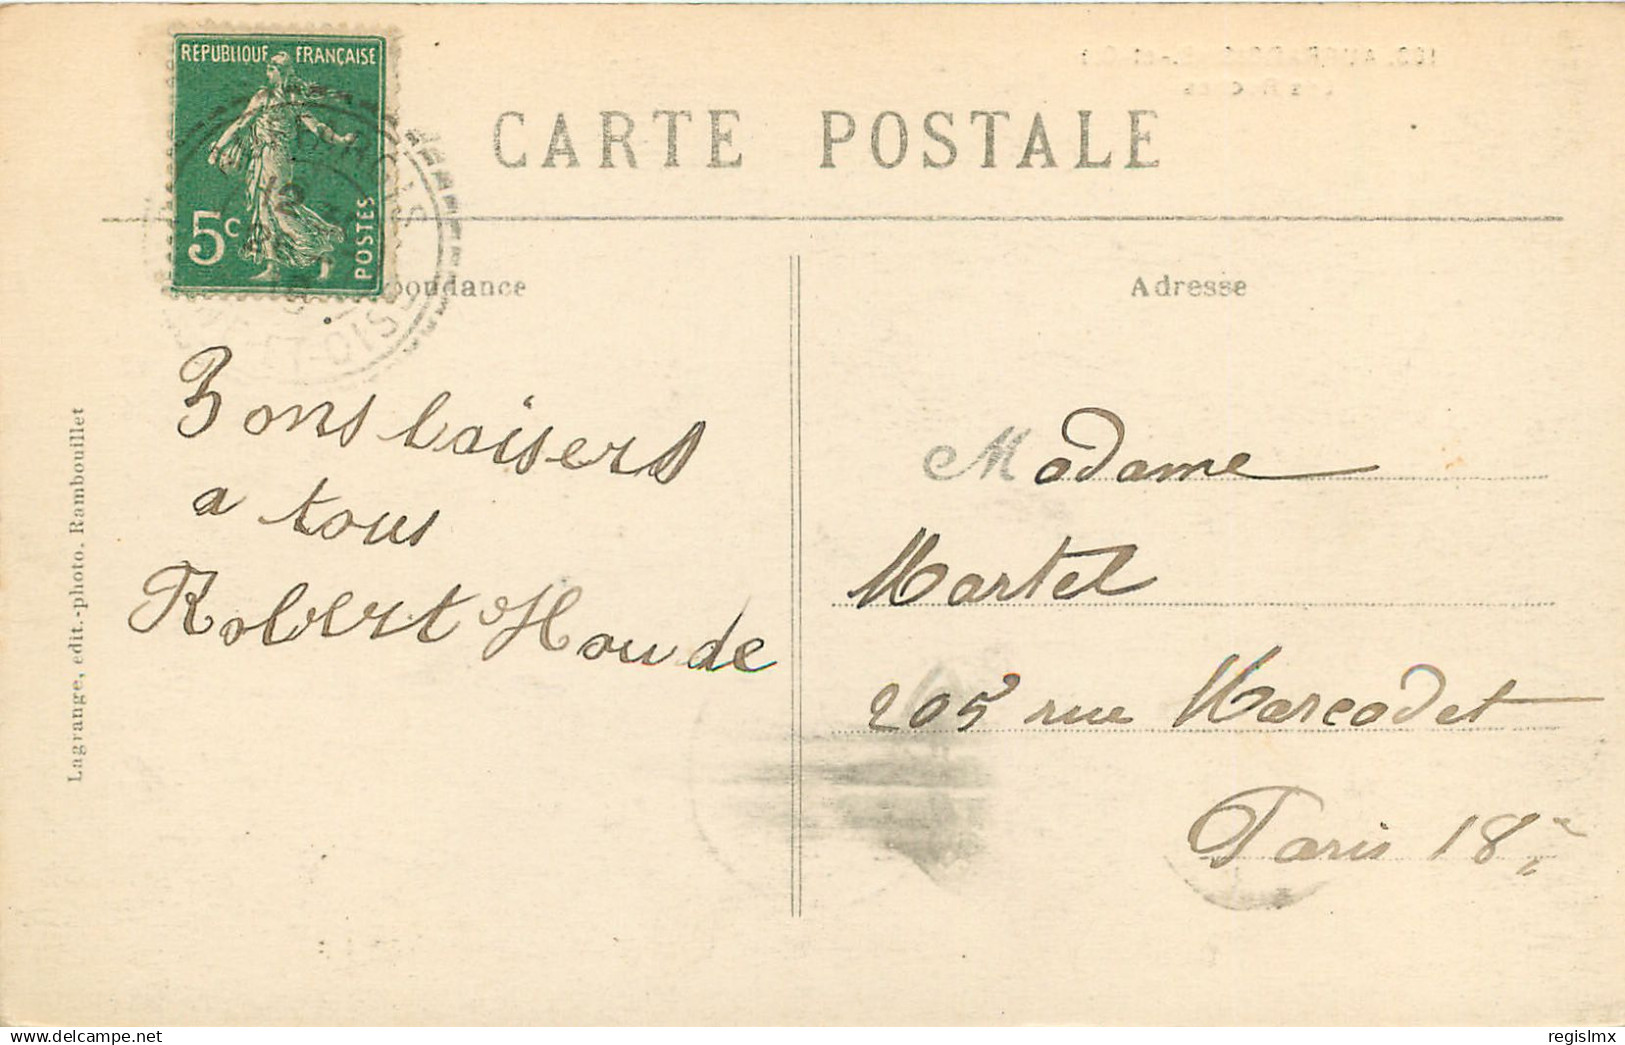 RÉPUBLIQUE FRANÇAISE
5c
POSTES
CARTE POSTALE
pondance
Adresse
Bons baisers
a tous
Robert Houde
Madame
Martel
205 rue Marcadet
Paris 18e
Lagrange, edit.-photo. Rambouillet
www.delcampe.net
regislmx